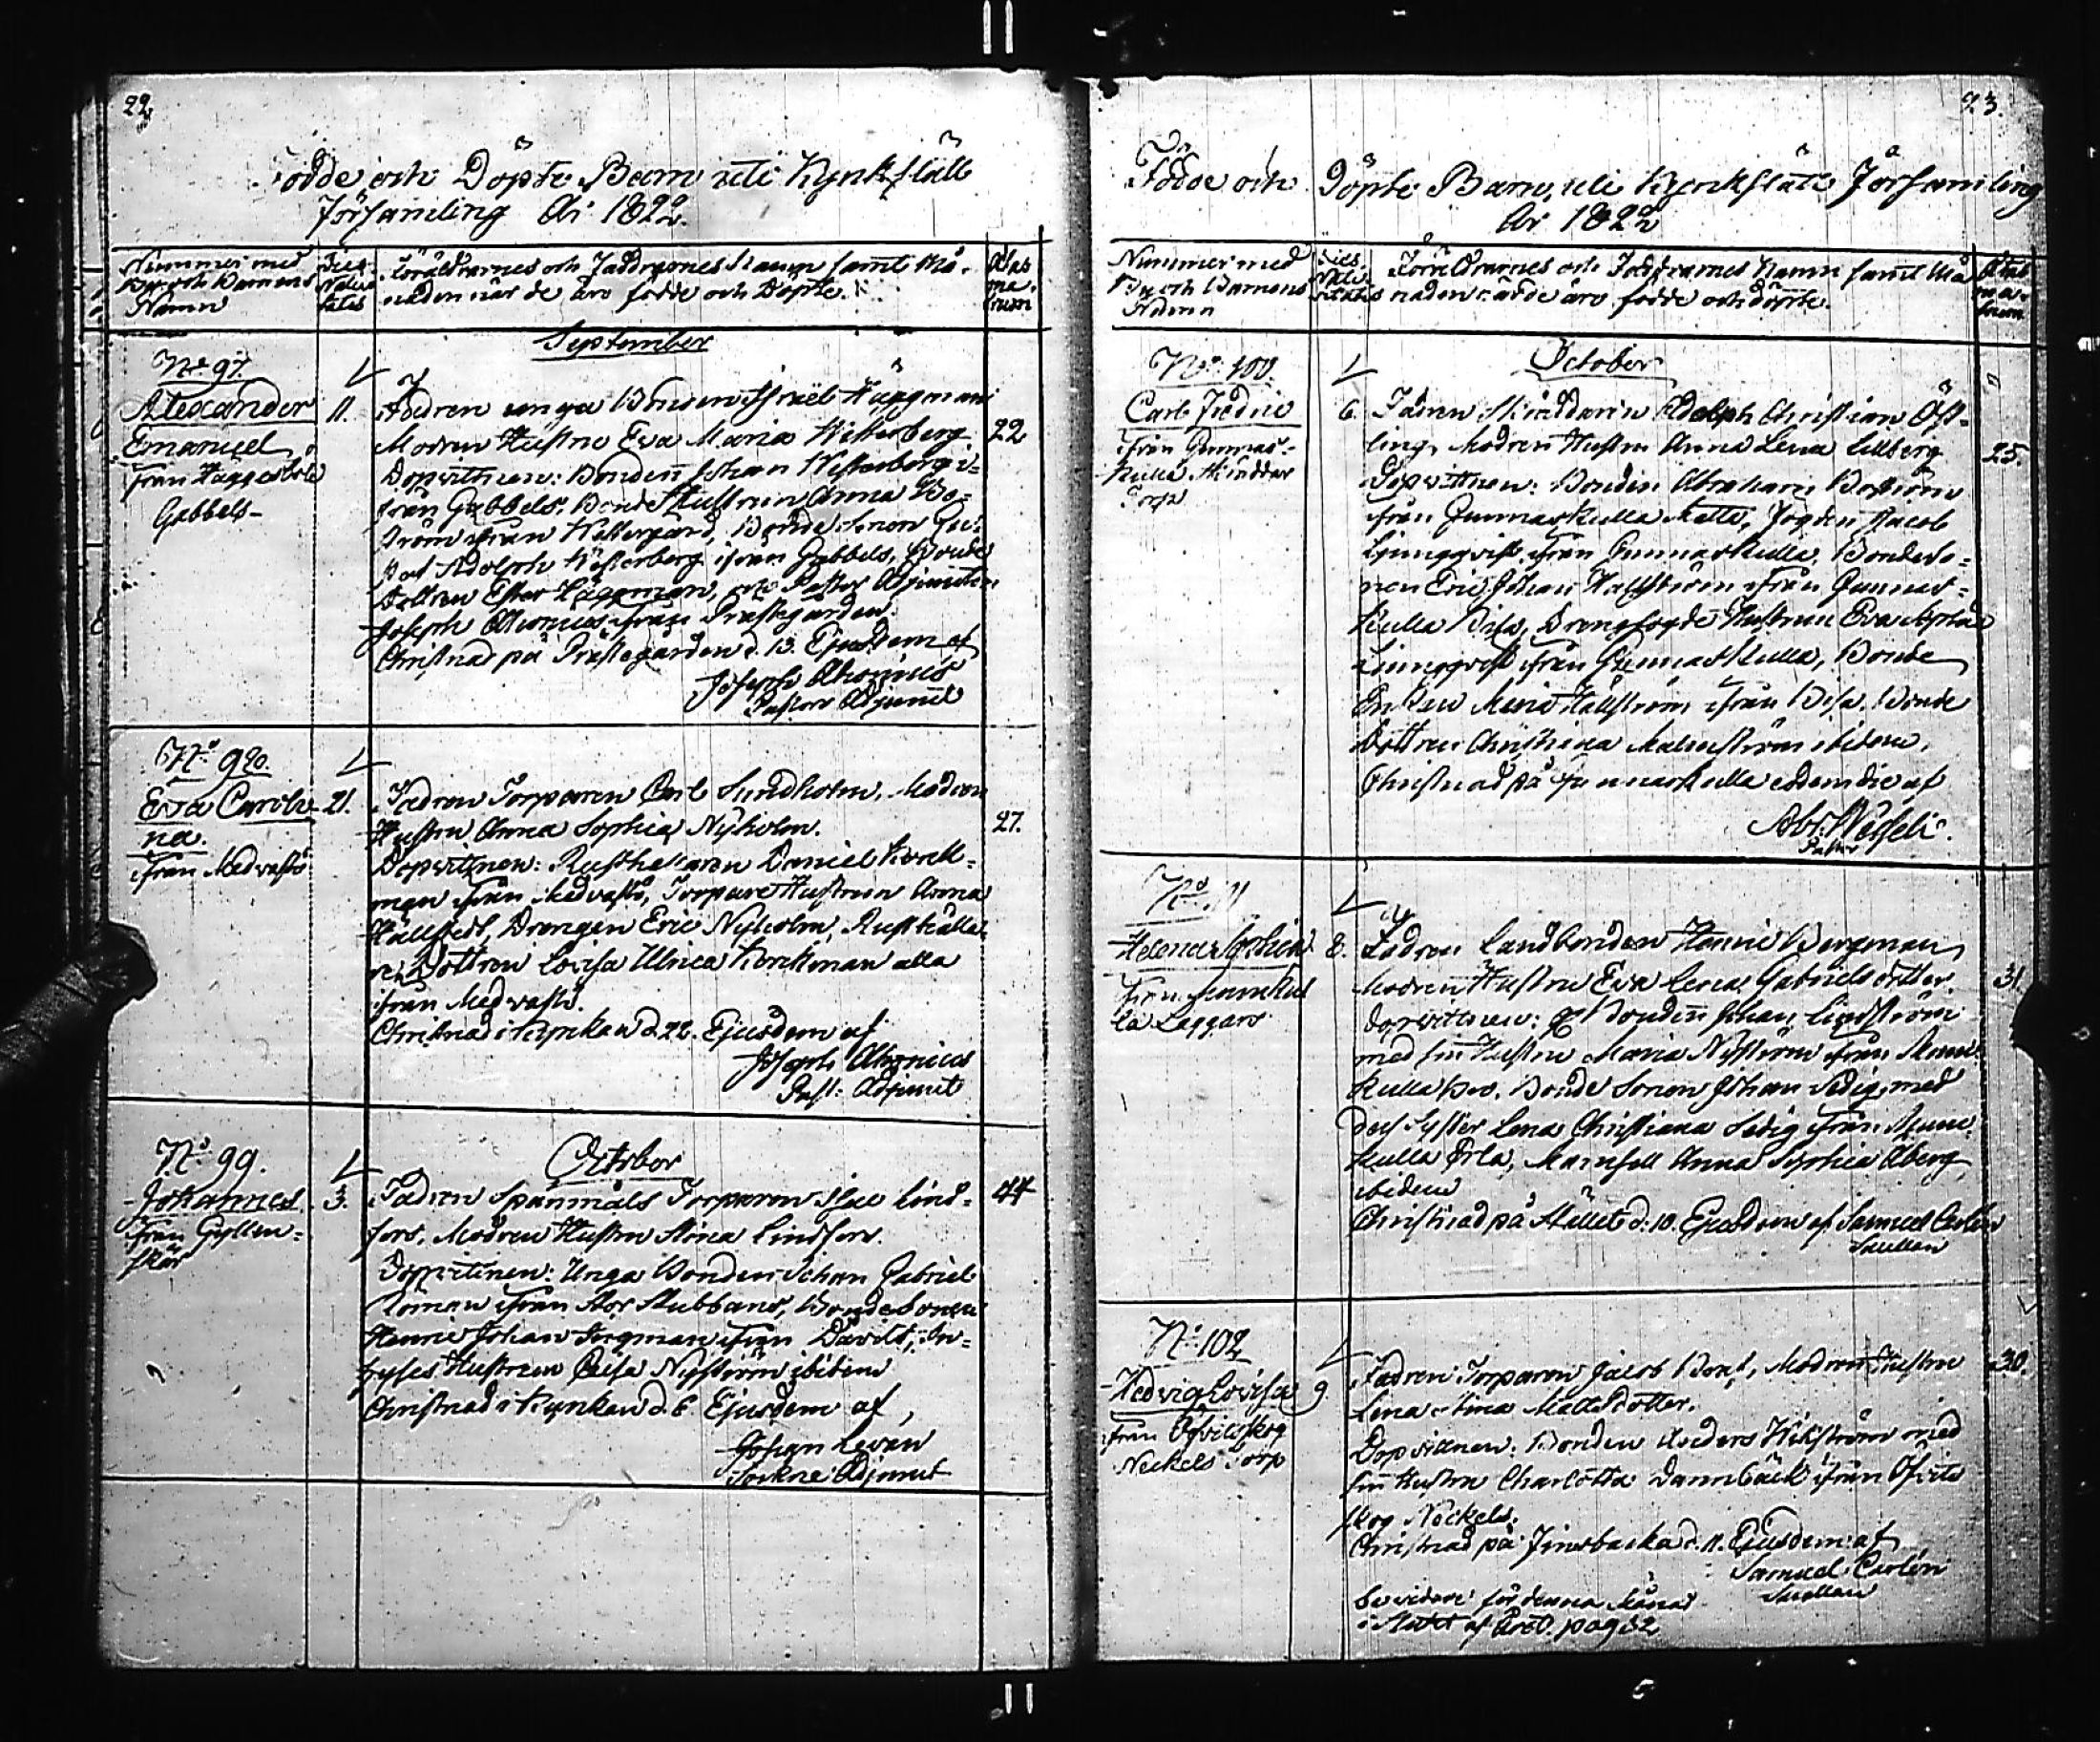 22.
Födde och Döpte Barn uti Kyrkslätt
Församling År 1822.
Nummer med
By och Barnens
Namn
Dies
Nativi
tatis
Föräldrarnes och Faddrarnes Namn samt Må-
naden när de äro födde och Döpte.
Ætas
ma-
trum
September
No 97.
Alexander
Emanuel
från Häggesböle
Gabbels
11.
Fadren unga Bonden Israël Häggman
Modren Hustru Eva Maria Westerberg.
22
Dopvittnen: Bonden Johan Westerberg
från Gabbels, Bonde Hustrun Anna Bo-
ström från Westergård, Bonde Sonen
Adolph Westerberg ifrån Gabbels, Bonde
Dottren Ester Häggman, och Pastors Adjuncten
Joseph Ahonius från Prästegården.
Christnad på Prästegården d. 13. Ejusdem af
Joseph Ahonius
Pastors Adjunct
No 98.
Eva Caroli-
na.
ifrån Medvasts
21.
Fadren Torparen Carl Sundholm, Modren
Hustru Anna Sophia Nyholm.
27.
Dopvittnen: Rusthållaren Daniel Korck-
man ifrån Medvasts, Torpare Hustrun Anna
Hällstedt, Drängen Eric Nyholm, Rusthålla-
re Dottren Lovisa Ulrica Korckman alla
ifrån Medvasts.
Christnad i Kyrkan d. 22. Ejusdem af
Joseph Ahonius
Past: Adjunct
October
No 99.
Johannes
från Gyllen-
skär
3.
Fadren Spanmåls Torparen Isac Lind-
fors, Modren Hustru Stina Lindfors.
44
Dopvittnen: Unga Bonden Johan Gabriel
Roman ifrån Stor Stubbans, Bondesonen
Henric Johan Bergman ifrån Davids, In-
hyses Hustrun Caisa Nyström ibidem
Christnad i Kyrkan d. 6. Ejusdem af
Johan Levan
Sockne Adjunct
23.
Födde och Döpte Barn, uti Kyrkslätts Församling
År 1822
Nummer med
By och Barnens
Namn
Dies
Nati-
vitatis
Föräldrarnes och Faddrarnes Namn samt Må
naden när de äro födde och döpte.
Ætas
ma-
trum
October
No 100.
Carl Fredric
ifrån Gunnars-
kulla Hindders
Torp
6.
Fadren Adolph Christian Öst-
ling, Modren Hustru Anna Lena Lillberg
25.
Dopvittnen: Bonden Abraham Boström
från Gunnarskulla Matts, Fogden Jacob
Ljungqvist från Gunnarskulla, Bondeso-
nen Eric Johan Hallström från Gunnars-
kulla Bisa, Drengfogde Hustrun Eva
Ljungqvist från Gunnarskulla, Bonde
Enkan Maria Hallström ifrån Bisa, Bonde
Dottren Christina Malmström ibidem.
Christnad på Gunnarskulla eodem die af
Abr: Weseli.
Pastor
Helena Sophia
från Munkul
la Laggars
8.
Fadren Landbonden Henric Bergman
Modren Hustru Eva Lena Gabrielsdotter.
31.
Dopvittnen: Bonden Johan Lindström
med sin Hustru Maria Nyström från Mun-
kulla Bonde Sonen Johan Sedig, med
dess Syster Lena Christiana Sedig ifrån Mun-
kulla Örla, Mamsell Anna Sophia Åberg
ibidem
Christnad på Stället d: 10. Ejusdem af Samuel Carlén
No 102
Hedvig Lovisa
från Öfvitsskog
Neckels Torp
9
Fadren Torparen Jacob Modren Hustru
Lena Stina Mattsdotter.
30.
Dopvittnen: Bonden Anders Wikström med
sin Hustru Charlotta Dannbäck ifrån Öfvits
skog Neckels.
Christnad på Finsbacka d. 11. Ejusdem af
Samuel Carlén
Se vidare för denna månad
i slutet af Året pag 32